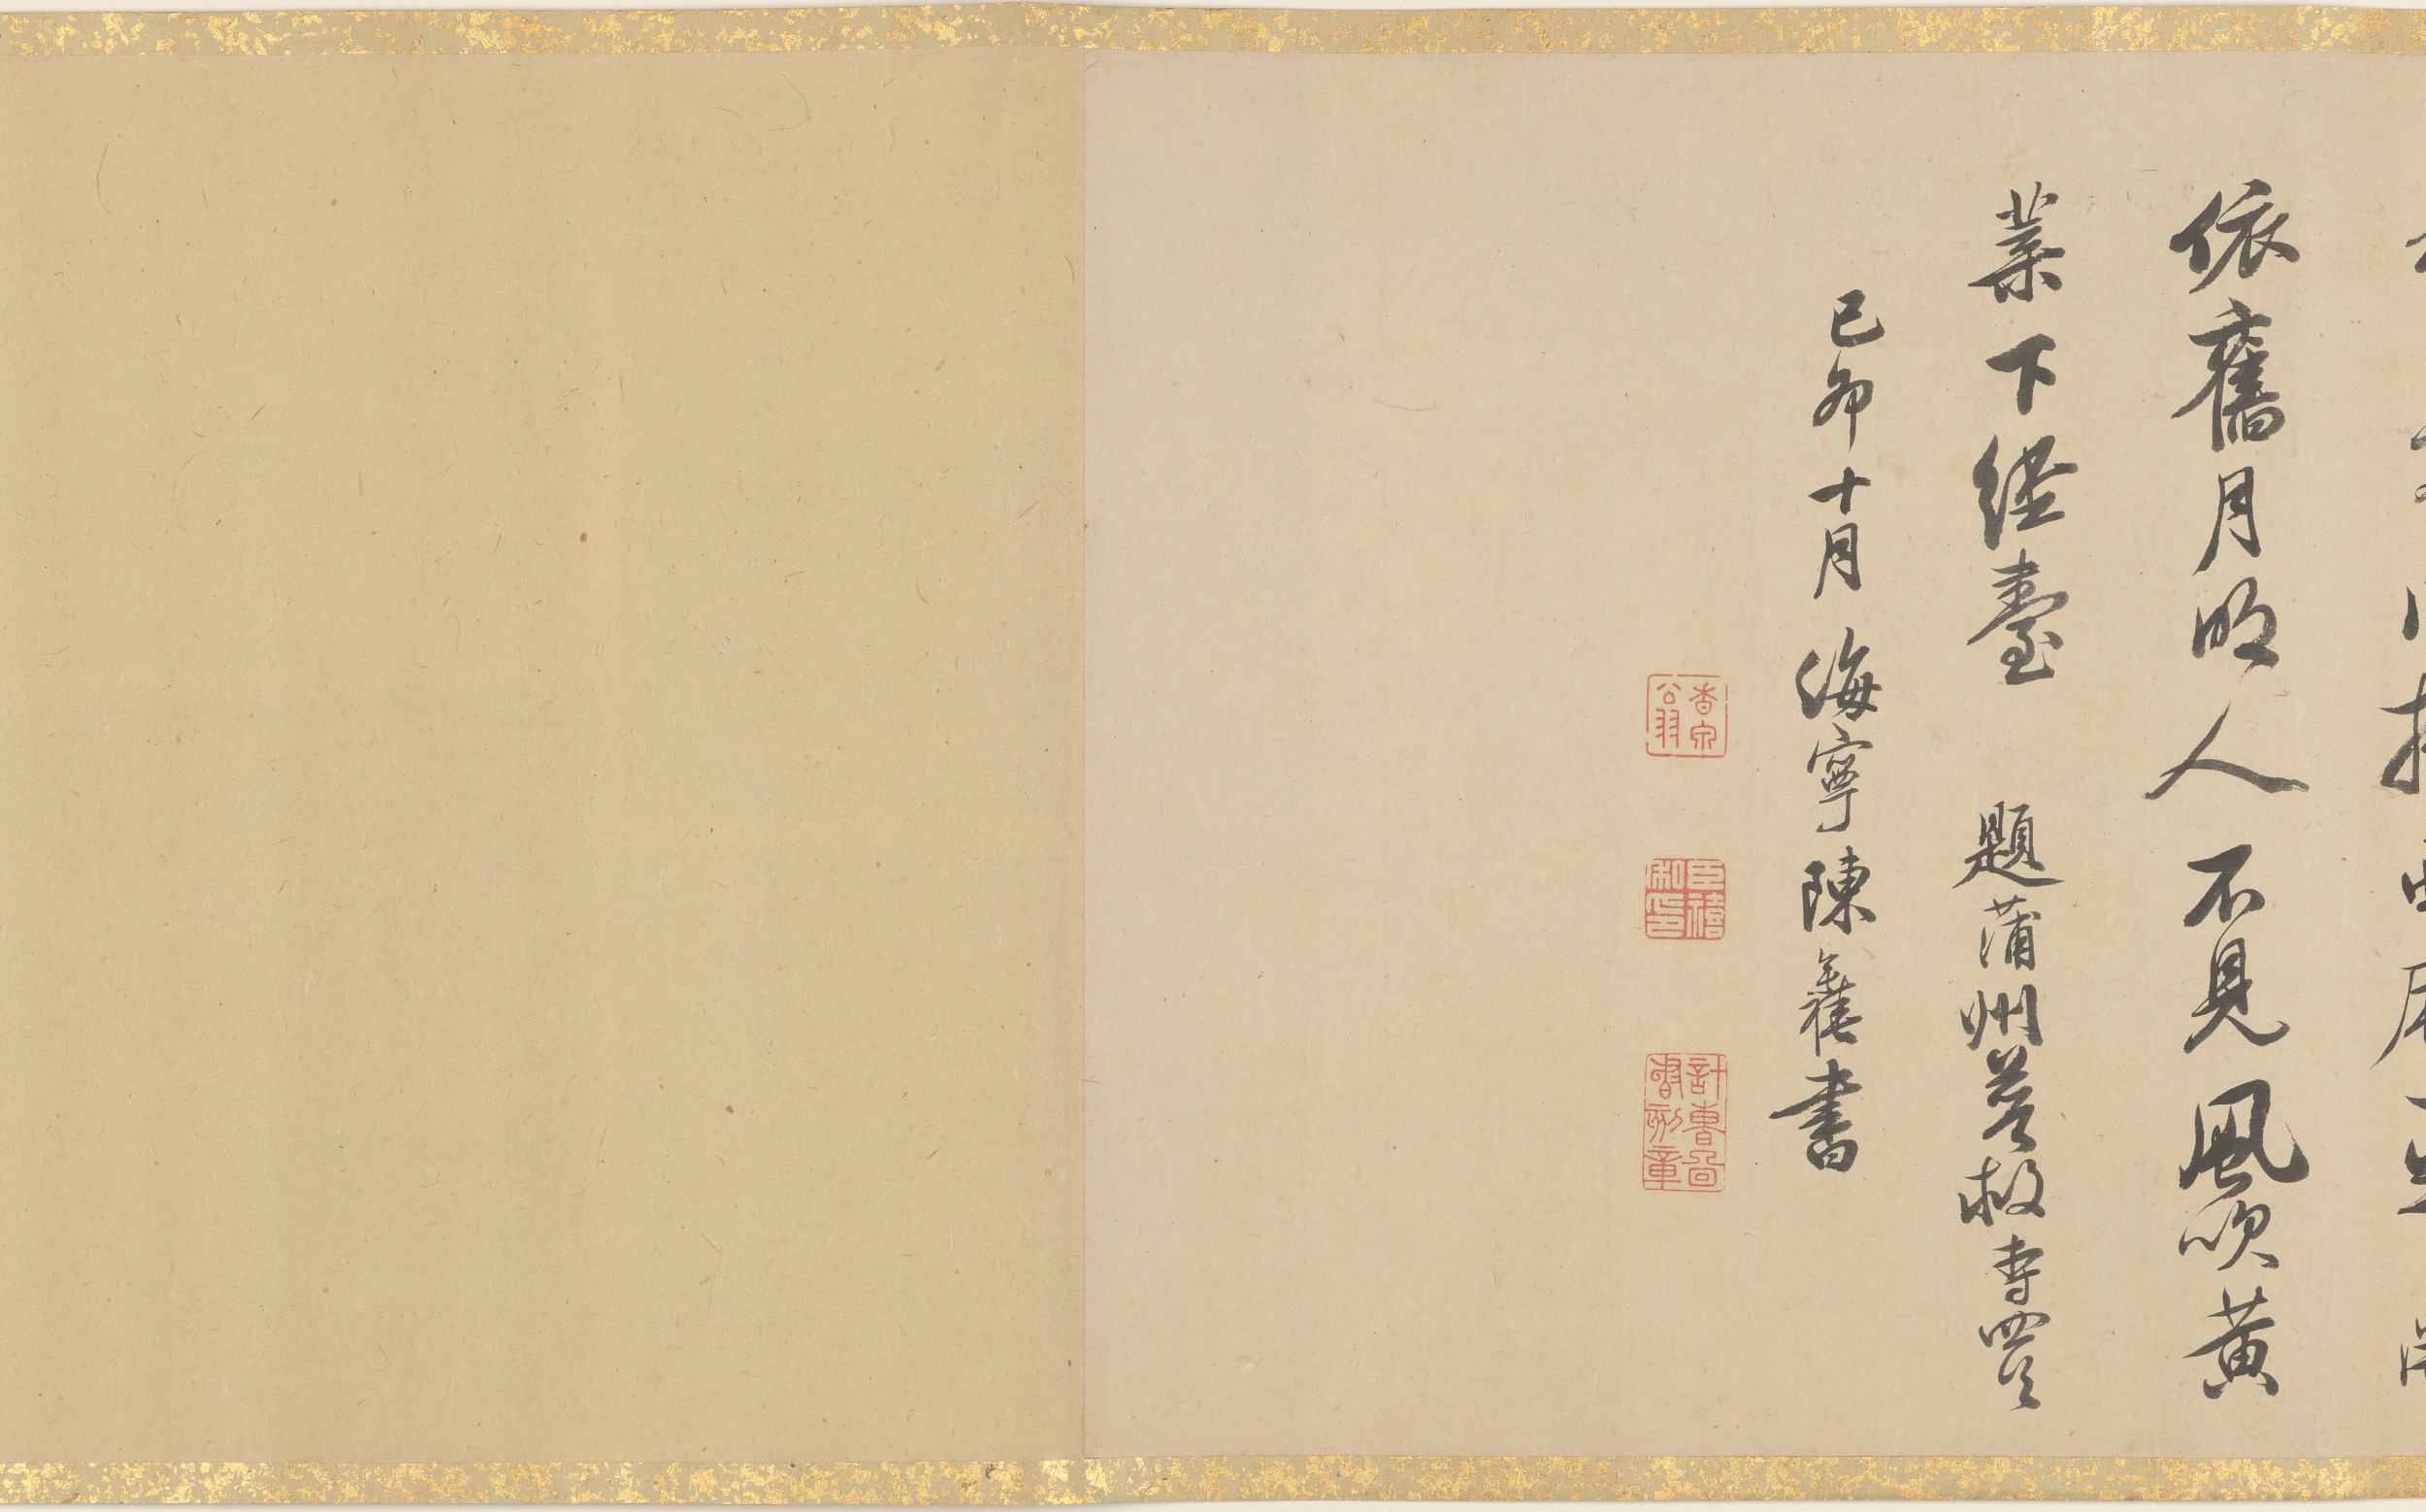 依舊月明人不見風吹黃
葉下經臺 題蒲州普救寺四首
己卯十月海寧陳奕禧書
香泉公羽
臣禧私印
計曹尚書郎章